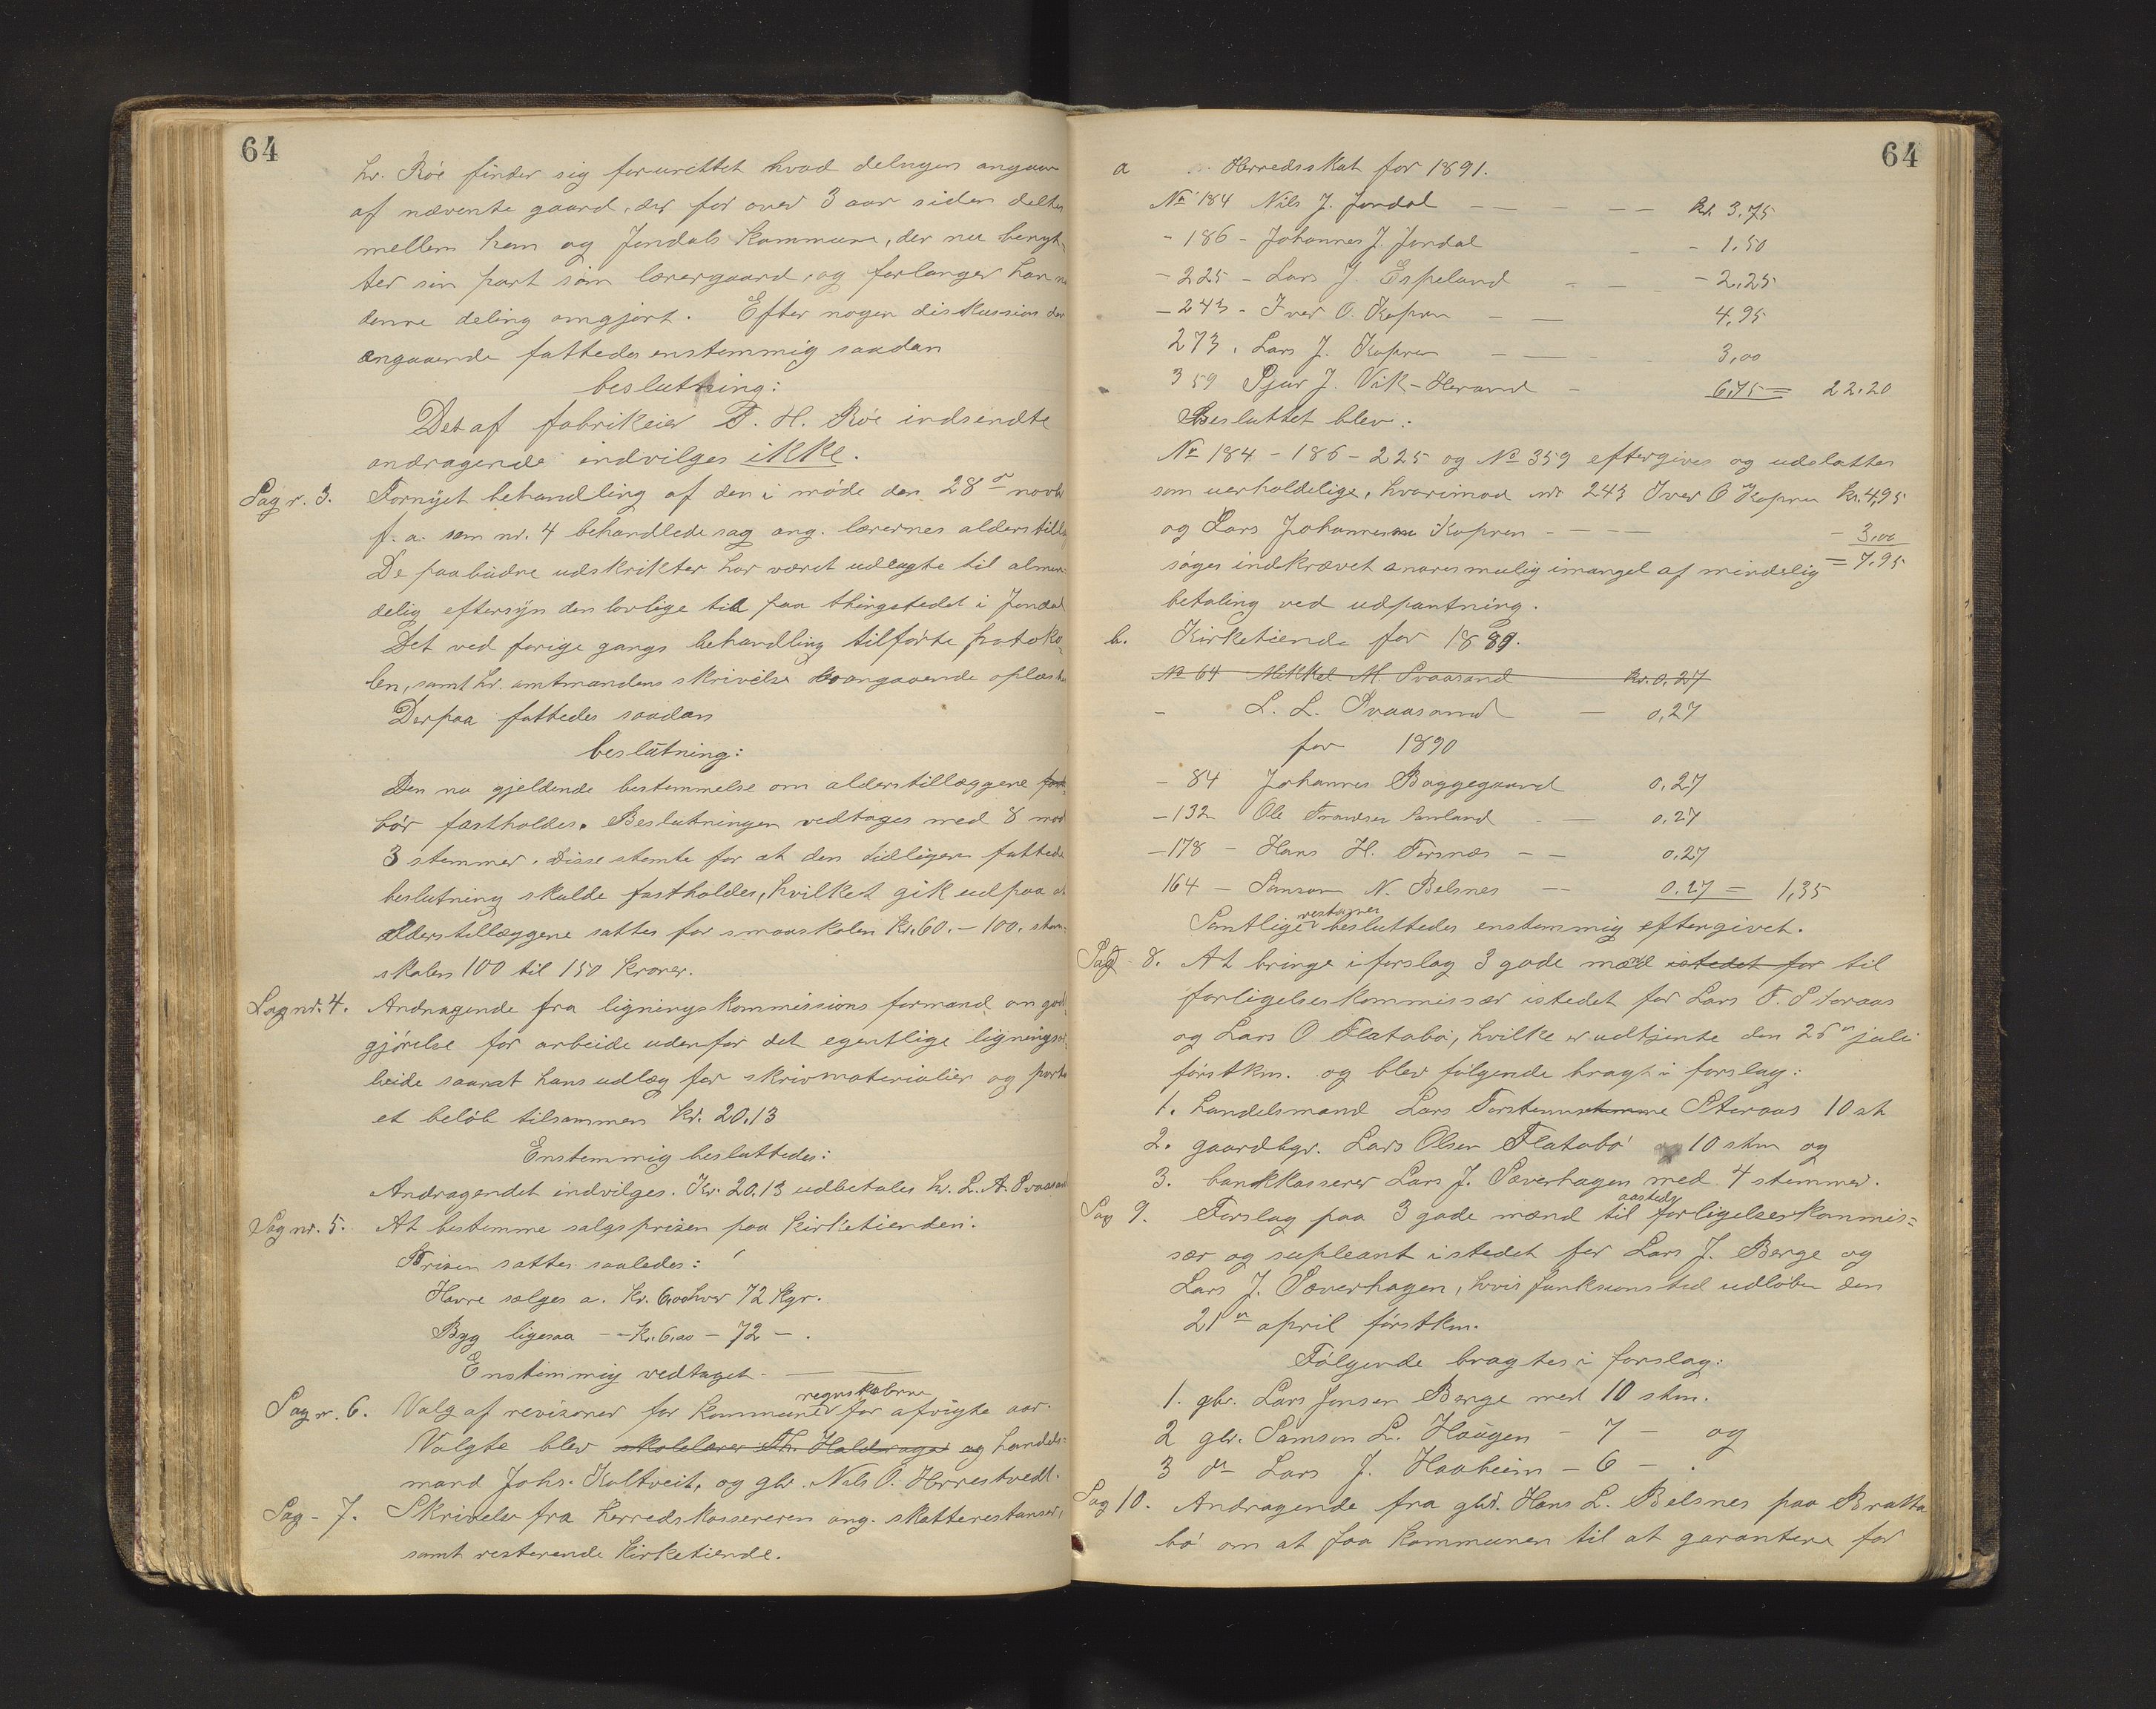 64
hr. Röe finder sig forurettet hvad delingen angaar
af nævente gaard, der for over 3 aar siden deltes
mellem ham og Jondals kommune, der nu benyt-
ter sin part som lærergaard, og forlanger han nu
denne deling omgjort. Efter nogen diskussion der
angaaende fattedes enstemmig saadan
beslutning:
Det af fabrikeier T. H. Röe indsendte
andragende indvilges ikke.
Sag nr. 3. Fornyet behandling af den i möde den 28de novbr
f. a. som nr. 4 behandlede sag ang. lærernes alderstillæg
De paabudne udskrikter har været udlagte til almin-
delig eftersyn den lovlige tid paa thingstedet i Jondal
Det ved forige gangs behandling tilförte protoko-
len, samt hr. amtmandens skrivelse angaaende oplæstes
Derpaa fattedes saadan
beslutning:
Den nu gjeldende bestemmelse om alderstillæggene
bör fastholdes. Beslutningen vedtages med 8 mod
3 stemmer. Disse stemte for at den tidligere fattede
beslutning skulde fastholdes, hvilket gik ud paa at
alderstillæggene sattes for smaaskolen Kr. 60. - 100. stor-
skolen 100 til 150 kroner.
Sag nr. 4. Andragende fra ligningskommissions formand om god-
gjörelse for arbeide udenfor det egentlige ligningsar-
beide saamt hans udlæg for skrivmaterialier og porto
et belöb tilsammen Kr. 20.13
Enstemmig besluttedes:
Andragendet indvilges. Kr. 20.13 udbetales hr. L. A. Svaasand
Sag nr. 5. At bestemme salgsprisen paa kirketienden.
Prisen sattes saaledes:
Havre sælges a. Kr. 6,00 hver 72 kgr.
Byg ligesaa - - Kr. 6,00 - 72 - .
Enstemmig vedtaget.
Sag nr. 6. Valg af revisorer for kommuneregnskaberne for afvigte aar.
Valgte blev skolelærer Th. Haldorager og handels-
mand Johs. Kaltveit, og gbr. Nils O. Herrestvedt.
Sag - 7. Skrivelse fra herredskassereren ang. skatterestanser,
samt resterende kirketiende.
64
a Herredsskat for 1891.
No 184 Nils J. Jondal - - - - Kr. 3,75
- 186 - Johannes J. Jondal - - 1,50
- 225 - Lars J. Espeland - - - 2,25
- 243 - Iver O. Kopren - - 4,95
273. Lars J. Kopren - - - 3,00
359 Sjur J. Vik-Herand - 6,75 = 22.20
Besluttet blev:
No 184 - 186 - 225 og No 359 eftergives og udslattes
som uerholdelige, hvorimod nr 243 Iver O Kopren Kr. 4,95
og Lars Johannesen Kopren - - - - 3,00
söges indkrævet snaresmulig imangel af mindelig = 7,95
betaling ved udpantning.
b. Kirketiende for 1889.
No 64 Mikkel M. Svaasand Kr. 0,27
- L. L. Svaasand - 0,27
for 1890
- 84 Johannes Baggegaard 0,27
- 132 Ole Samland - 0,27
- 178 - Hans H. Torsnæs - - 0,27
164 - Samson N. Belsnes - - 0,27 = 1,35
Samtlige restanser besluttedes enstemmig eftergivet.
Sag 8. At bringe i forslag 3 gode mænd istedet for til
forligelseskommissær istedet for Lars T. Storaas
og Lars O Flatabö, hvilke er udtjente den 25de juli
förstkm. og blev fölgende bragt i forslag:
1. handelsmand Lars Storaas 10 st
2. gaardbgr. Lars Olsen Flatabö 10 stm og
3. bankkasserer Lars J. Sæverhagen med 4 stemmer.
Sag 9. Forslag paa 3 gode mænd til aasteds forligelseskommis=
sær og supleant istedet for Lars J. Berge og
Lars J. Sæverhagen, hvis funksionstid udlöber den
21de april förstkm.
Fölgende bragtes i forslag:
1. gbr. Lars Jonsen Berge med 10 stm.
2 gbr. Samson L. Haugen - 7 - og
3 do Lars J. Haaheim - 6 - .
Sag 10. Andragende fra gbr. Hans L. Belsnes paa Bratta
bö om at faa kommunen til at garantere for